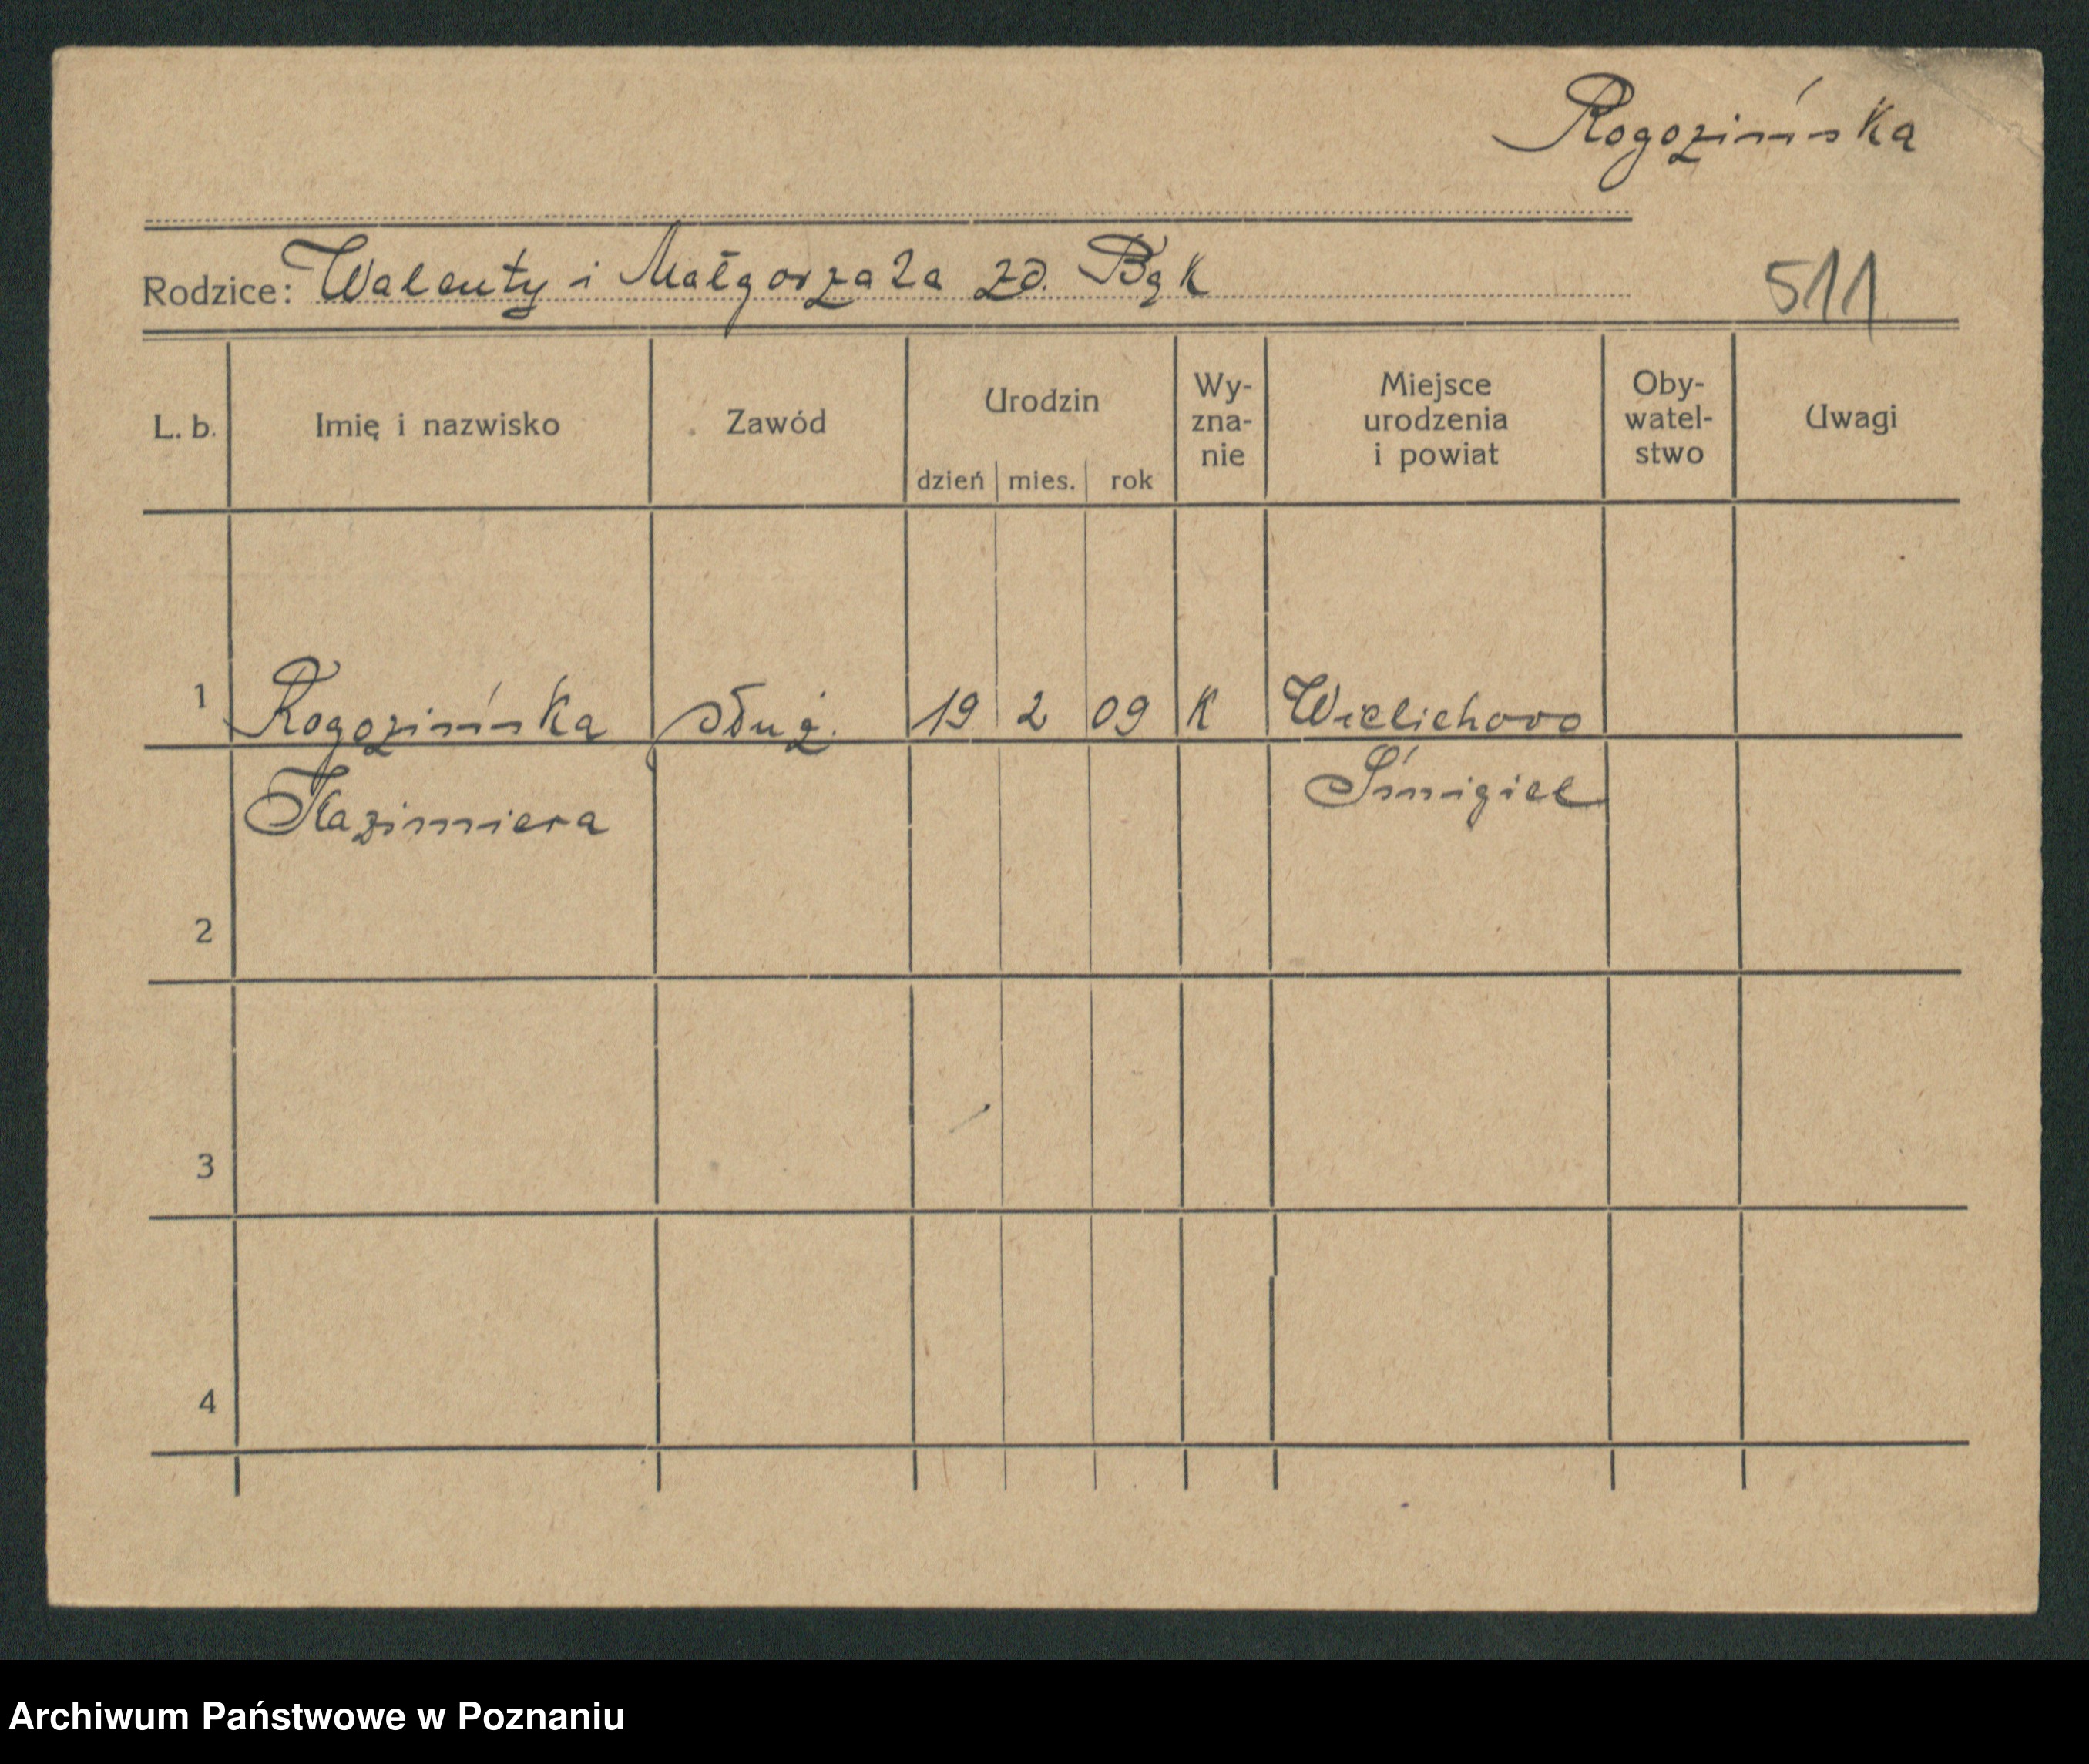 Rogozińska
Rodzice: Walenty i Małgorzata zd. Bąk
511
L. b. Imię i nazwisko Zawód Urodzin dzień mies. rok Wy- zna- nie Miejsce urodzenia i powiat Oby- watel- stwo Uwagi
1 Rogozińska służ. 19 2 09 K Wielichowo
Kazimiera Śmigiel
2
3
4
Archiwum Państwowe w Poznaniu